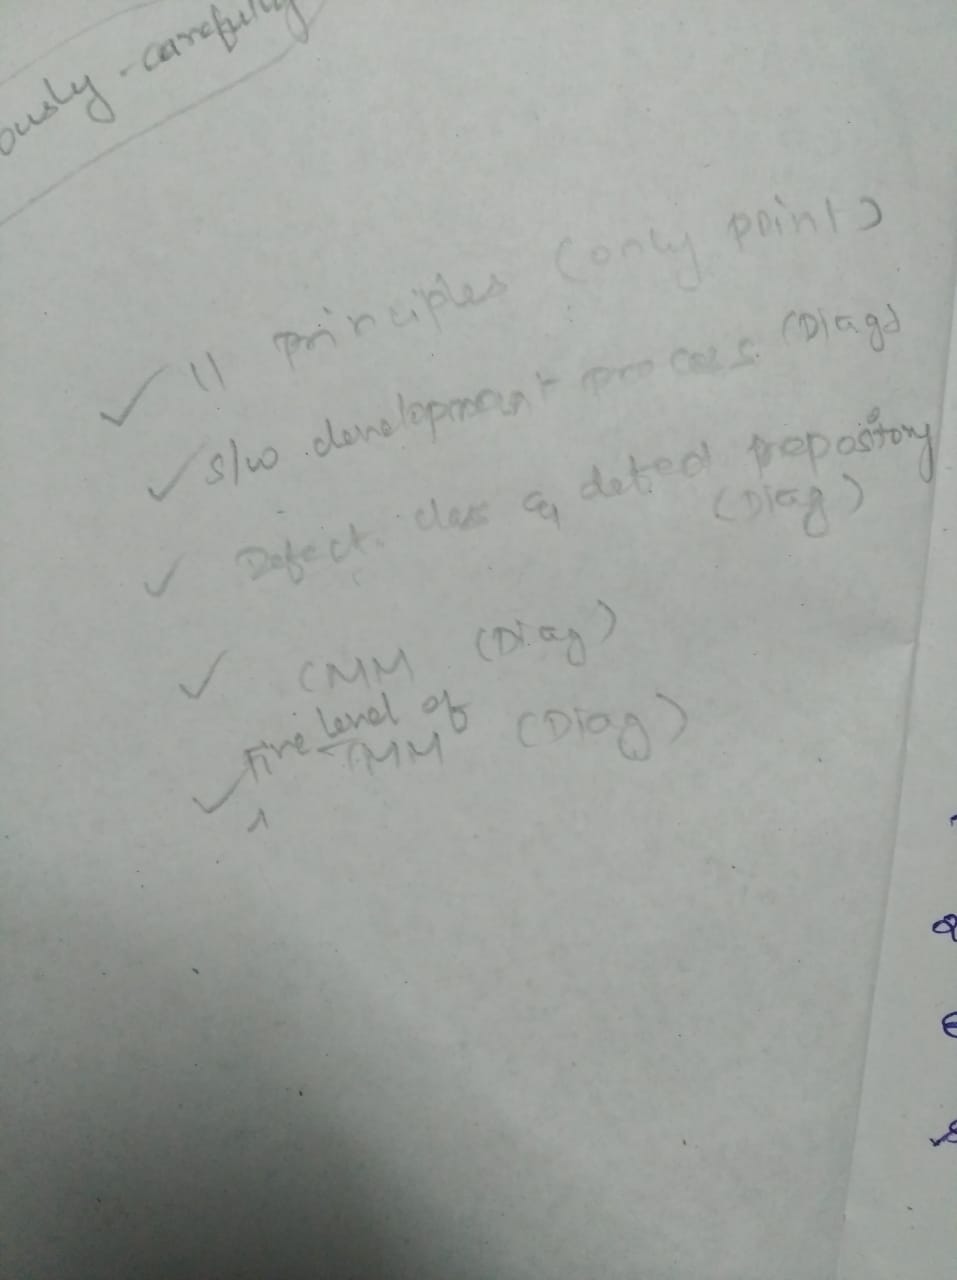 carefully
11 principles (only point)
s/w development process (Diag)
Defect class & defect repository
(Diag)
CMM (Diag)
Five level of
TMM (Diag)